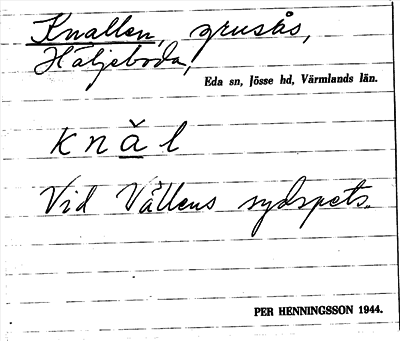 Knallen, grusås,
Häljeboda,
Eda sn, Jösse hd, Värmlands län.
knăl
Vid Vällens sydspets.
PER HENNINGSSON 1944.